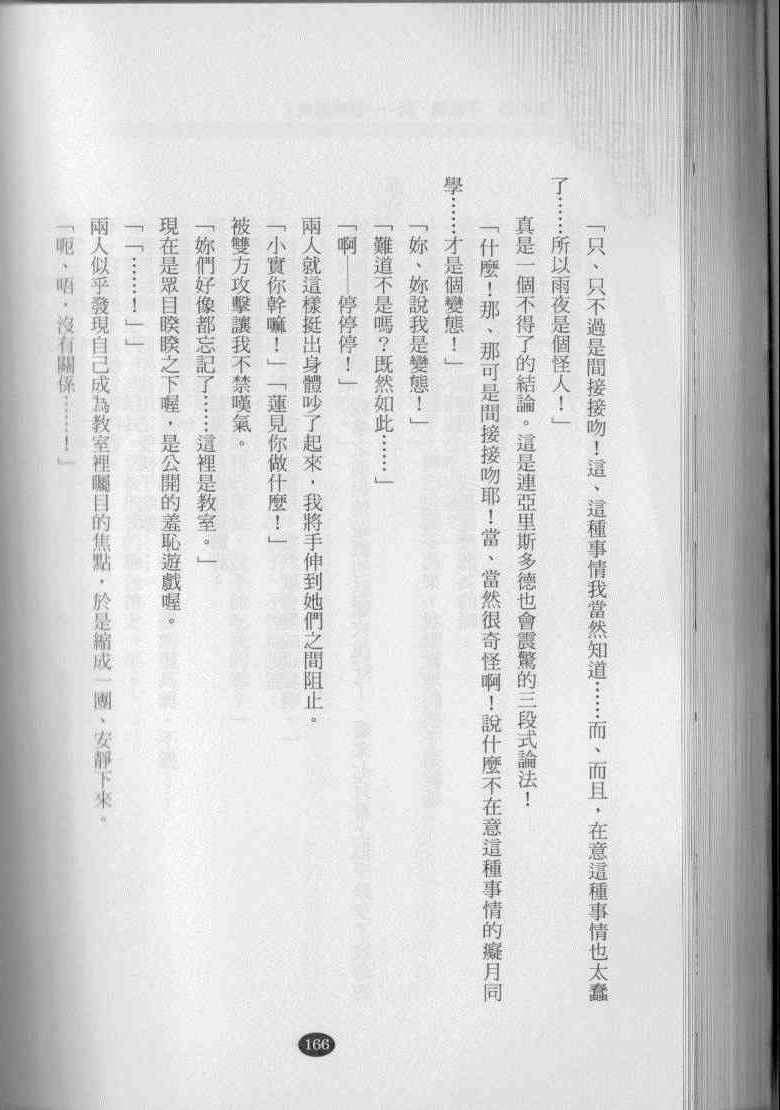 「只、只不過是間接接吻！這、這種事情我當然知道……而、而且，在意這種事情也太蠢
了……所以雨夜是個怪人！」
真是一個不得了的結論。這是連亞里斯多德也會震驚的三段式論法！
「什麼！那、那可是間接接吻耶！當、當然很奇怪啊！說什麼不在意這種事情的癡月同
學……才是個變態！」
「妳、妳說我是變態！」
「難道不是嗎？既然如此……」
「啊——停停停！」
兩人就這樣挺出身體吵了起來，我將手伸到她們之間阻止。
「小實你幹嘛！」「蓮見你做什麼！」
被雙方攻擊讓我不禁嘆氣。
「妳們好像都忘記了……這裡是教室。」
現在是眾目睽睽之下喔，是公開的羞恥遊戲喔。
「「……！」」
兩人似乎發現自己成為教室裡矚目的焦點，於是縮成一團、安靜下來。
「呃、唔，沒有關係……！」
166